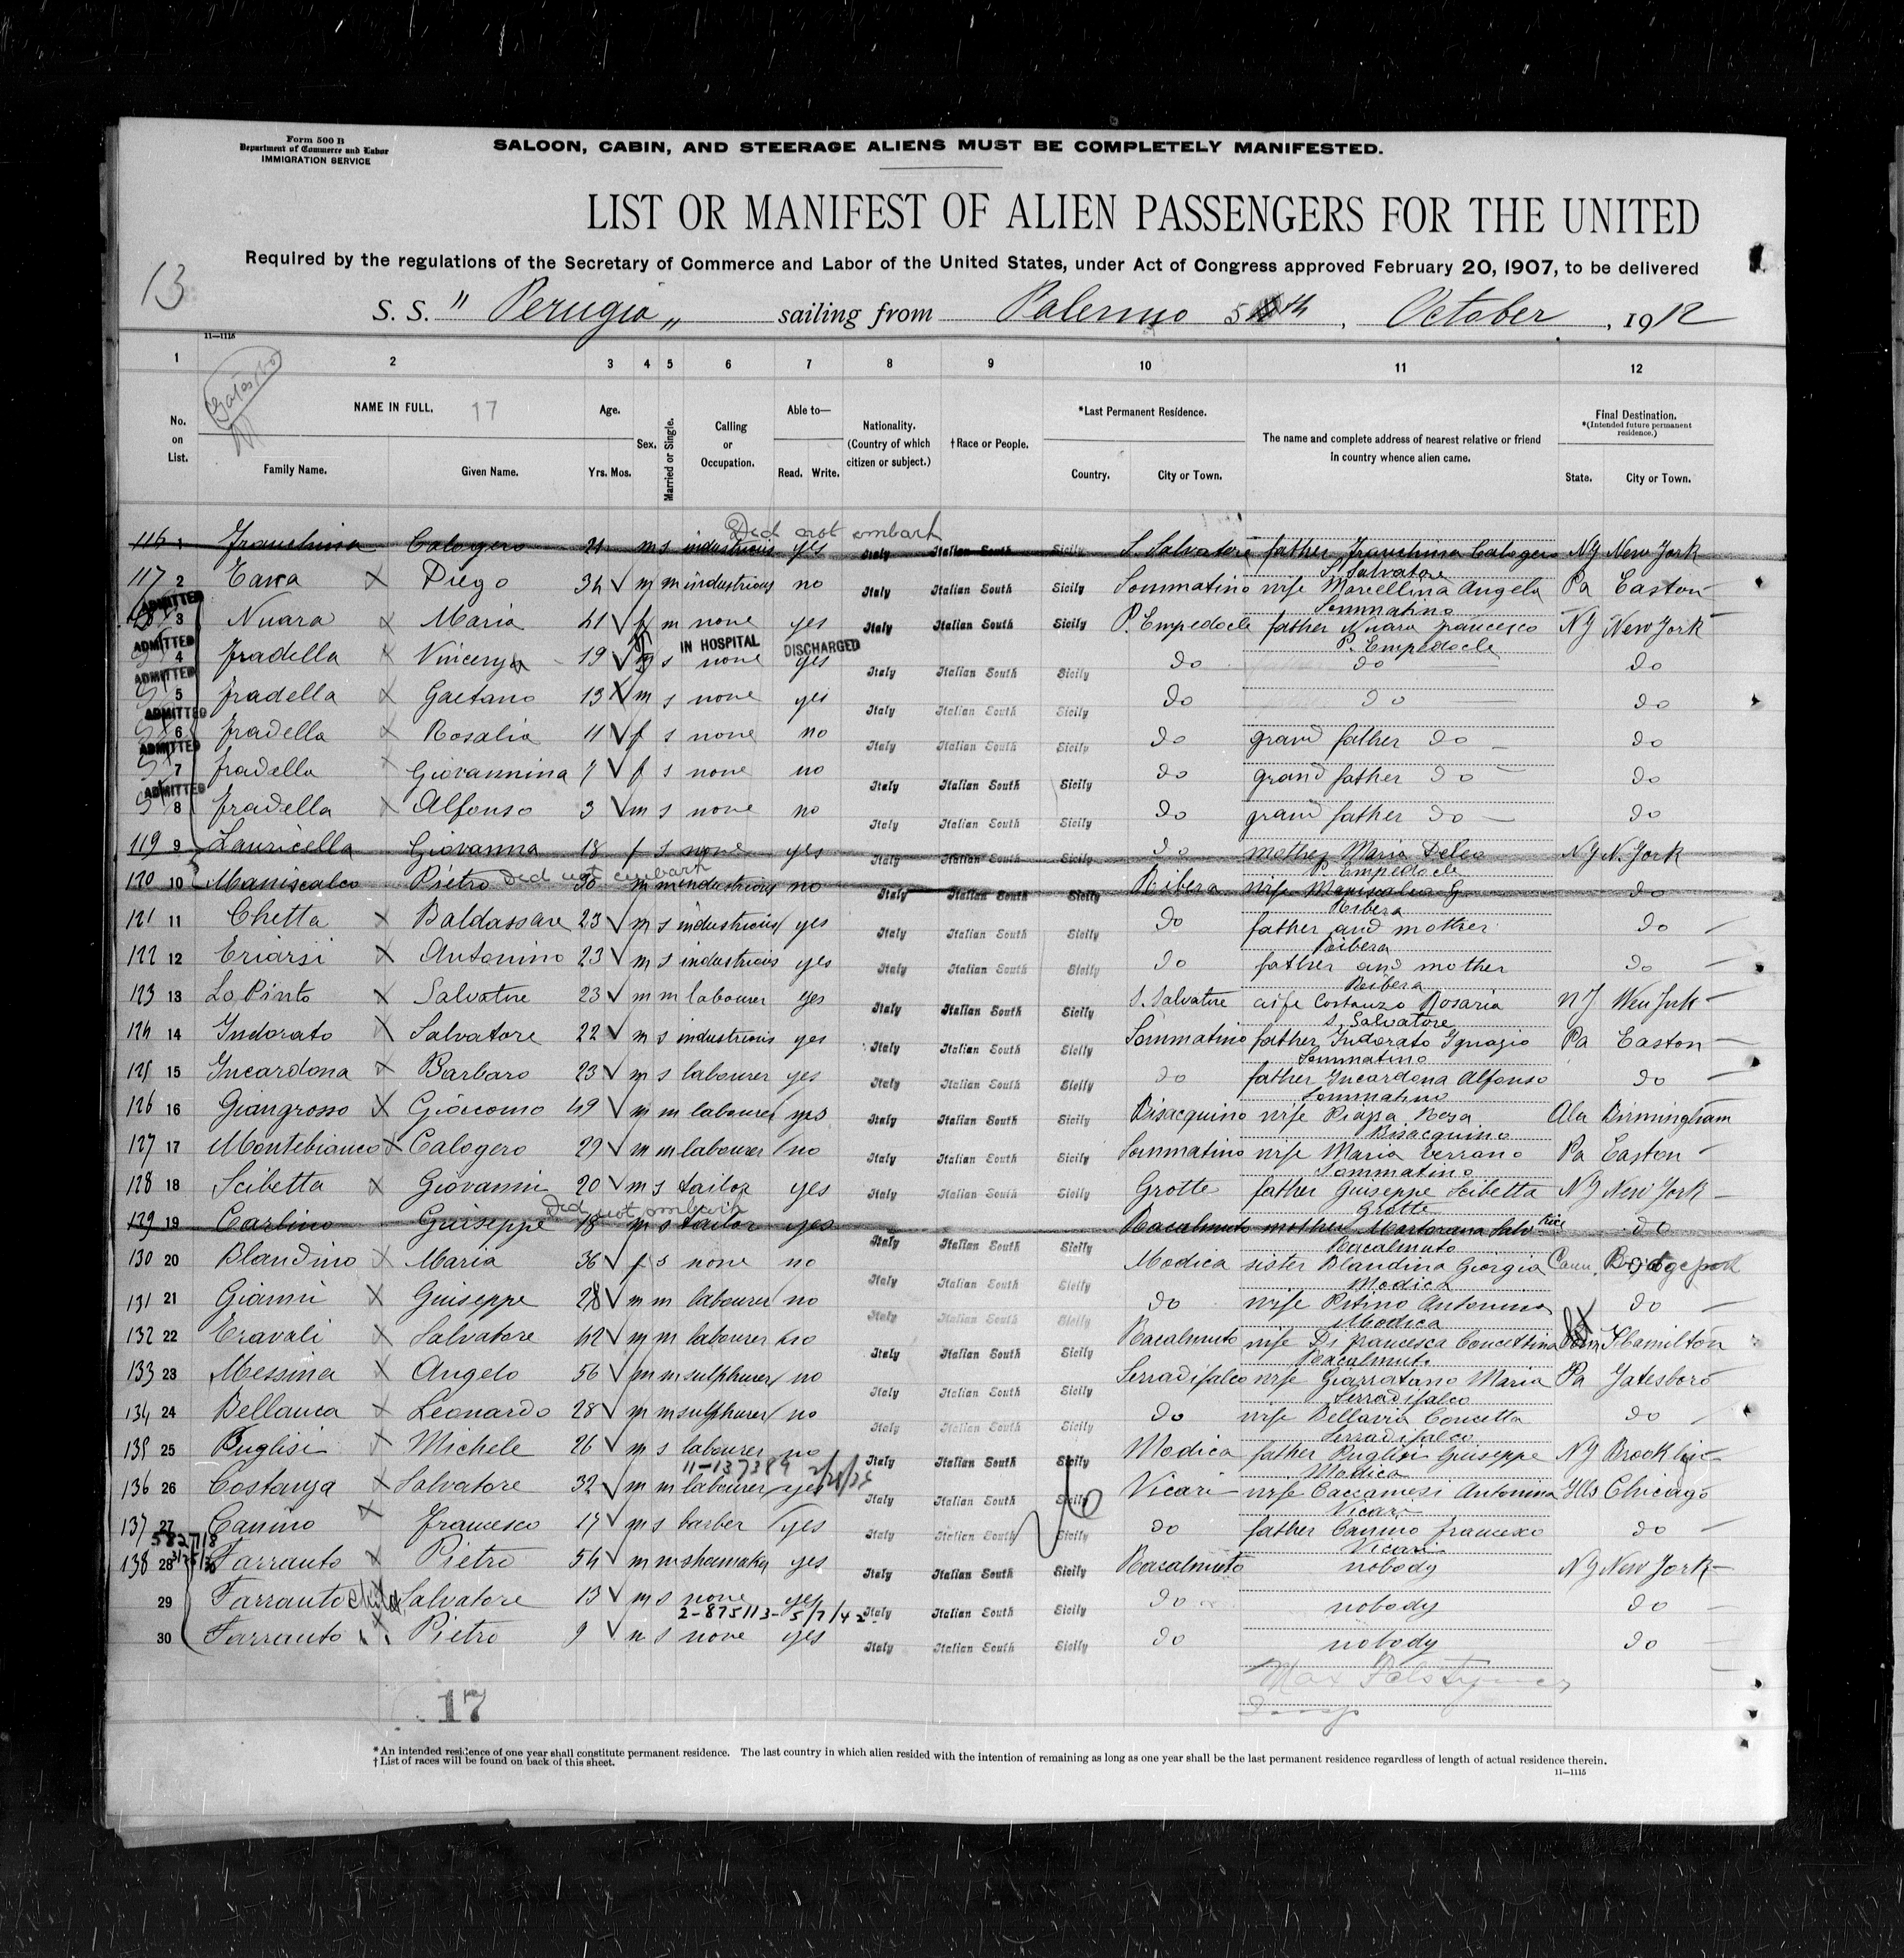 Form 500 B
Department of Commerce and Labor
IMMIGRATION SERVICE
SALOON, CABIN, AND STEERAGE ALIENS MUST BE COMPLETELY MANIFESTED.
LIST OR MANIFEST OF ALIEN PASSENGERS FOR THE UNITED
Required by the regulations of the Secretary of Commerce and Labor of the United States, under Act of Congress approved February 20, 1907, to be delivered
13
S. S. " Perugia " sailing from Palermo 5th, October, 1912
11—1115
1 2 3 4 5 6 7 8 9 10 11 12
No. on List. NAME IN FULL. 17 Family Name. Given Name. Age. Yrs. Mos. Sex. Married or Single. Calling or Occupation. Able to— Read. Write. Nationality. (Country of which citizen or subject.) †Race or People. *Last Permanent Residence. Country. City or Town. The name and complete address of nearest relative or friend in country whence alien came. Final Destination. *(Intended future permanent residence.) State. City or Town.
Did not embark
116 1 Franchina Calogero 21 m s industrious yes Italy Italian South Sicily S. Salvatore father Franchina Calogero NY New York
S. Salvatore
117 2 Diego 34 m m industrious no Italy Italian South Sicily Sommatino wife Marcellina Angela Pa Easton
Sommatino
ADMITTED 3 Nuara Maria 41 f m none yes Italy Italian South Sicily P. Empedocle father Nuara Francesco NY New York
P. Empedocle
ADMITTED 4 Fradella Vincenza 19 s IN HOSPITAL none DISCHARGED yes Italy Italian South Sicily do do do
ADMITTED 5 Fradella Gaetano 13 m s none yes Italy Italian South Sicily do do do
ADMITTED 6 Fradella Rosalia 11 f s none no Italy Italian South Sicily do grand father do do
ADMITTED 7 Fradella Giovannina 7 f s none no Italy Italian South Sicily do grand father do do
ADMITTED 8 Fradella Alfonso 3 m s none no Italy Italian South Sicily do grand father do do
119 9 Lauricella Giovanna 18 f s none yes Italy Italian South Sicily do mother Maria NY N. York
P. Empedocle
120 10 Maniscalco Pietro Did not embark 30 m m industrious no Italy Italian South Sicily Ribera wife Maniscalco G. do
Ribera
121 11 Chetta Baldassare 23 m s industrious yes Italy Italian South Sicily do father and mother do
Ribera
122 12 Antonino 23 m s industrious yes Italy Italian South Sicily do father and mother do
Ribera
123 13 Lo Pinto Salvatore 23 m m labourer yes Italy Italian South Sicily S. Salvatore Costanzo Rosaria NY New York
S. Salvatore
124 14 Indorato Salvatore 22 m s industrious yes Italy Italian South Sicily Sommatino father Indorato Ignazio Pa Easton
Sommatino
125 15 Incardona Barbaro 23 m s labourer yes Italy Italian South Sicily do father Incardona Alfonso do
Sommatino
126 16 Giangrosso Giacomo 49 m m labourer yes Italy Italian South Sicily Bisacquino wife Piazza Ala Birmingham
Bisacquino
127 17 Montebianco Calogero 29 m m labourer no Italy Italian South Sicily Sommatino wife Maria Pa Easton
Sommatino
128 18 Scibetta Giovanni 20 m s tailor yes Italy Italian South Sicily Grotte father Guiseppe Scibetta NY New York
Grotte
Did not embark
129 19 Carlino Guiseppe 18 m s tailor yes Italy Italian South Sicily Racalmuto mother Martorana do
Racalmuto
130 20 Blandino Maria 36 f s none no Italy Italian South Sicily Modica sister Blandina Giorgia Conn. Bridgeport
Modica
131 21 Gianni Guiseppe 28 m m labourer no Italy Italian South Sicily do wife Antonina do
Modica
132 22 Salvatore 42 m m labourer no Italy Italian South Sicily Racalmuto wife Di Francesca Concettina Hamilton
Racalmuto
133 23 Messina Angelo 56 m m sulphurer no Italy Italian South Sicily Serradifalco wife Giarratano Maria Pa Yatesboro
Serradifalco
134 24 Bellanca Leonardo 28 m m sulphurer no Italy Italian South Sicily do wife Bellavia Concetta do
Serradifalco
135 25 Puglisi Michele 26 m s labourer no Italy Italian South Sicily Modica father Puglisi Guiseppe NY Brooklyn
Modica
11-137389
136 26 Costanza Salvatore 32 m m labourer yes Italy Italian South Sicily Vicari wife Caccamesi Antonina Ills Chicago
Vicari
137 27 Canino Francesco 17 m s barber yes Italy Italian South Sicily do father Canino Francesco do
Vicari
582718
138 28 Farrauto Pietro 54 m m shomaker yes Italy Italian South Sicily Racalmuto nobody NY New York
29 Farrauto child Salvatore 13 m s none yes Italy Italian South Sicily do nobody do
2-875113-5/7/42
30 Farrauto Pietro 9 m s none yes Italy Italian South Sicily do nobody do
17
*An intended residence of one year shall constitute permanent residence. The last country in which alien resided with the intention of remaining as long as one year shall be the last permanent residence regardless of length of actual residence therein.
†List of races will be found on back of this sheet.
11—1115